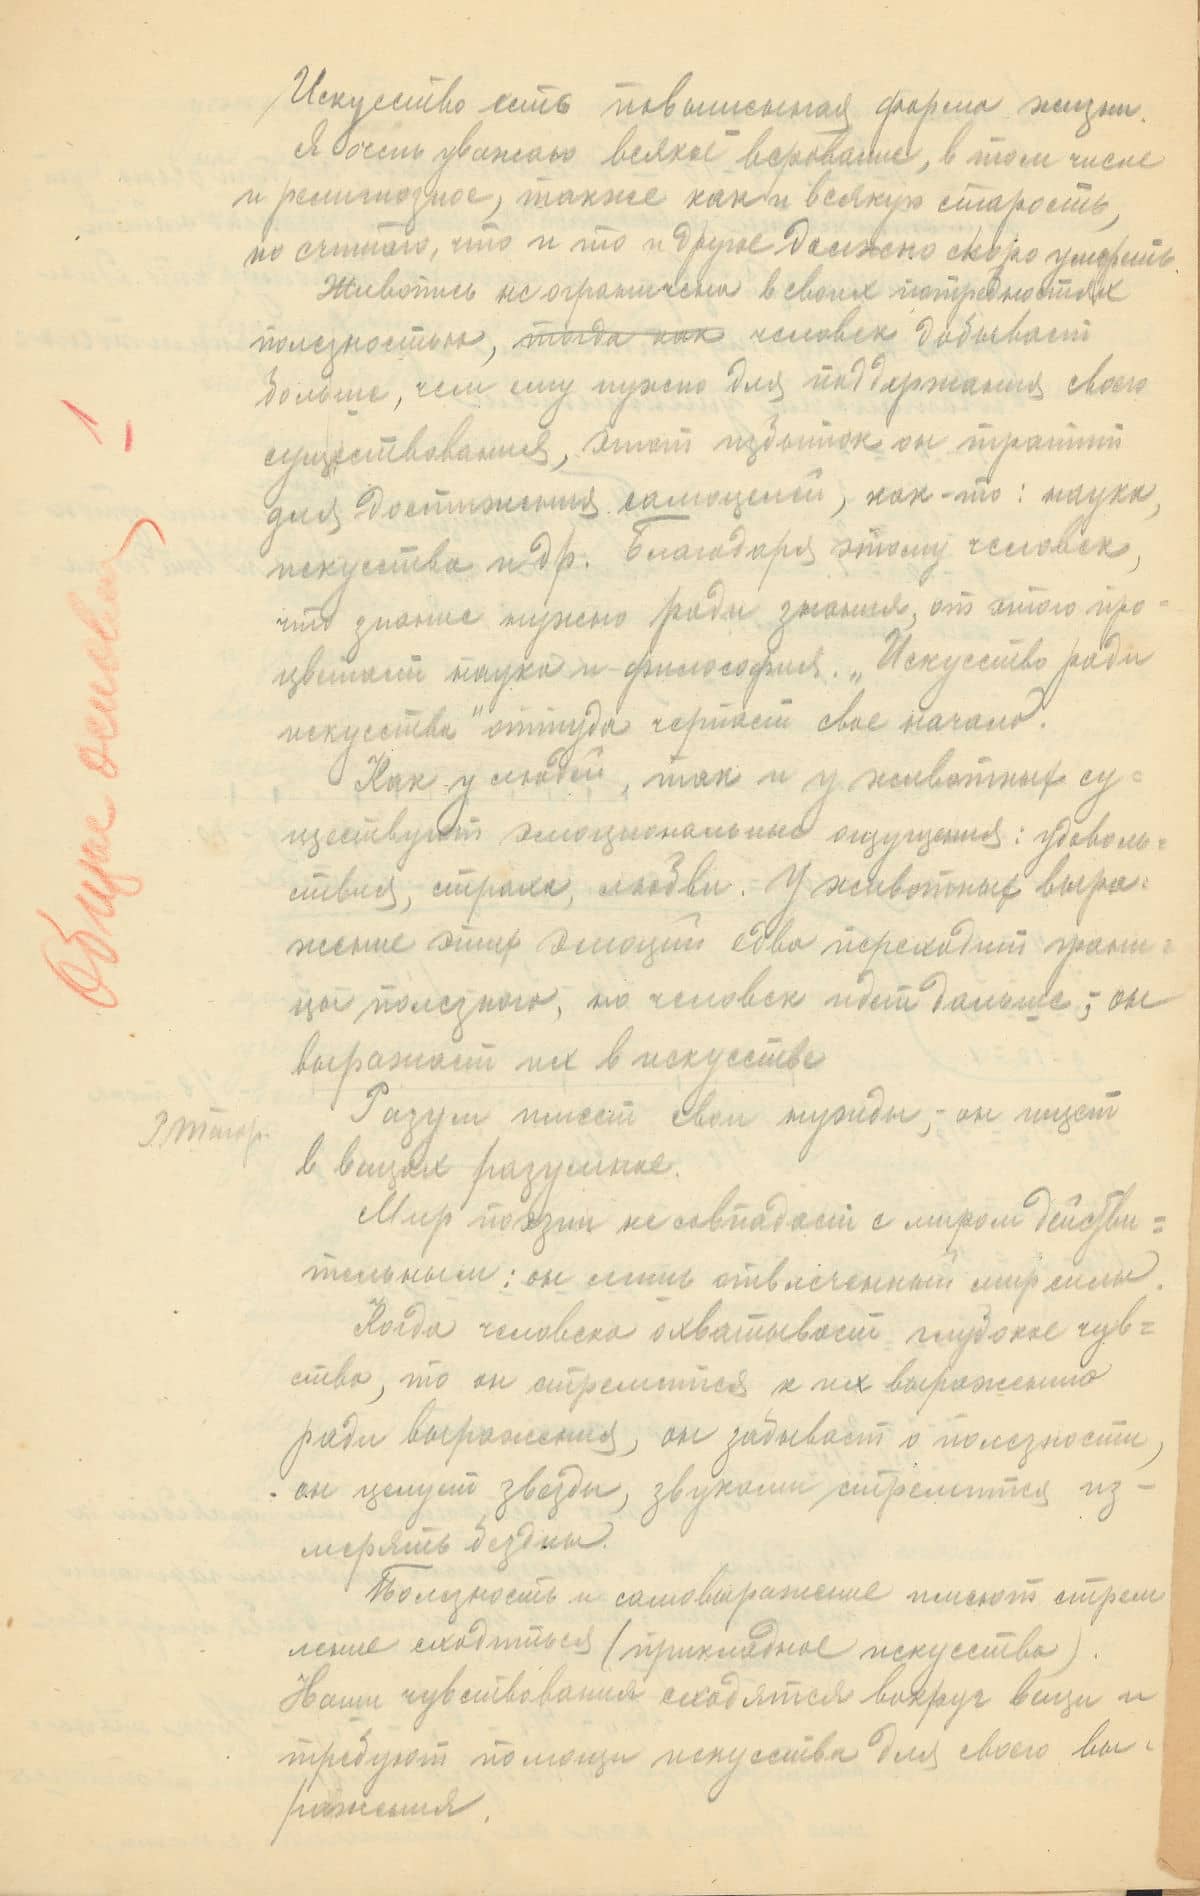 Искусство есть повышенная форма жизни.
Я очень уважаю всякое верование, в том числе
и религиозное, также как и всякую старость,
но считаю, что и то и другое должно скоро умереть.
Живопись не ограничена в своих потребностях
полезностью, тогда как человек добывает
больше, чем ему нужно для поддержания своего
существования, этот избыток он тратит
для достижения самоцелей, как-то: наука,
искусство и др. Благодаря этому человек,
что знание нужно ради знания, от этого про-
цветает наука и философия. „Искусство ради
искусства" оттуда черпает свое начало.
Как у людей, так и у животных су-
ществуют эмоциональные ощущения: удоволь-
ствия, страха, любви. У животных выра-
жение этих эмоций едва переходит грани-
цы полезного, но человек идет дальше; - он
выражает их в искусстве
Разум имеет свои нужды, - он ищет
в вещах разумное.
Мир поэзии не совпадает с миром действи-
тельным: он лишь отвлеченный мир силы.
Когда человека охватывает глубокое чув-
ство, то он стремится к их выражению
ради выражения, он забывает о полезности,
он целует звезды, звуками стремится из-
мерять бездны.
Полезность и самовыражение имеют стрем
ление сходиться (прикладное искусство).
Наши чувствования сходятся вокруг вещи и
требуют помощи искусства для своего вы-
ражения.
Общие основы
1